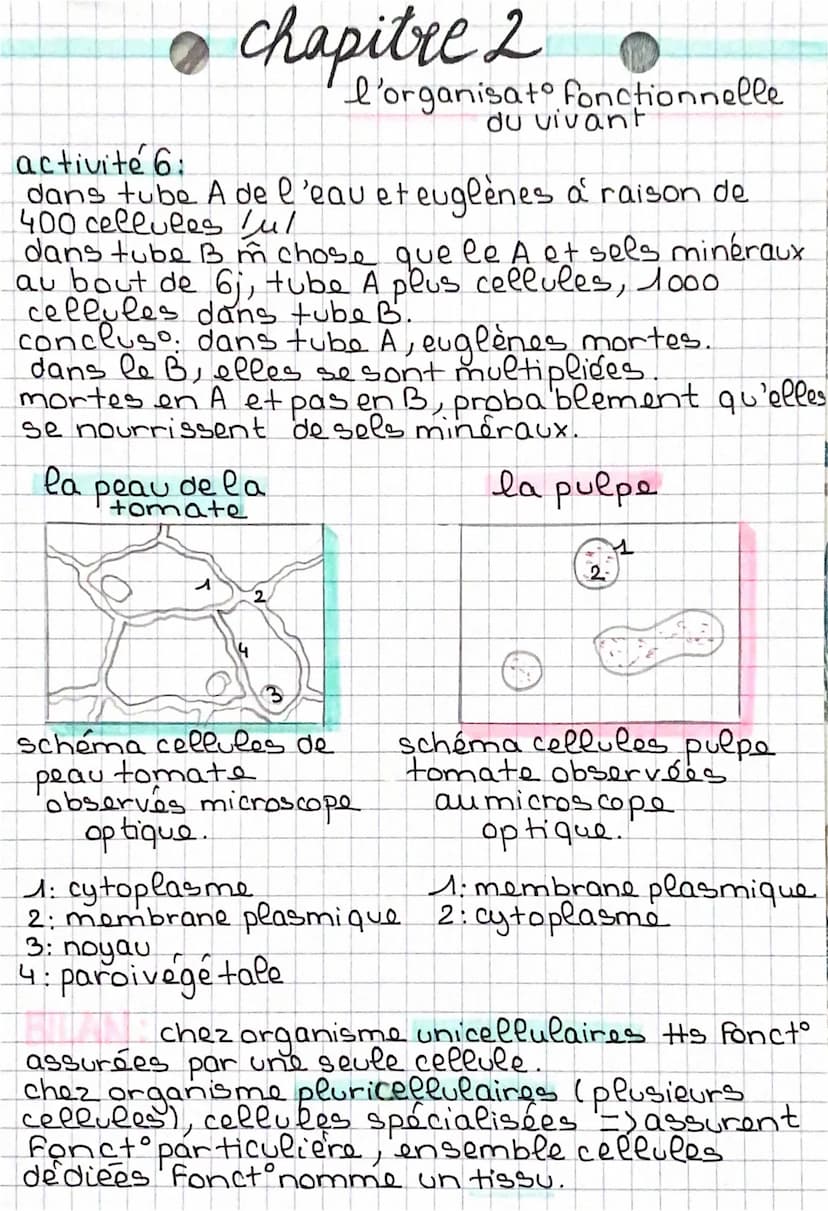 chapitre 2
l'organisat° fonctionnelle
du vivant
activité 6:
dans tube A de l'eau et euglènes à raison de
400 cellules /ul
dans tube B m̂ chose que le A et sels minéraux
au bout de 6j, tube A plus cellules, 1000
cellules dans tube B.
conclus°: dans tube A, euglènes mortes.
dans le B, elles se sont multipliées.
mortes en A et pas en B, probablement qu'elles
se nourrissent de sels minéraux.
la peau de la
tomate
la pulpe
1
2
4
3
1
2
schéma cellules de
peau tomate
observés microscope
optique.
schéma cellules pulpe
tomate observées
au microscope
optique.
1: cytoplasme
2: membrane plasmique
3: noyau
4: paroi végétale
1: membrane plasmique
2: cytoplasme
BILAN: chez organisme unicellulaires tts fonct°
assurées par une seule cellule.
chez organisme pluricellulaires (plusieurs
cellules), cellules spécialisées => assurent
fonct° particulière, ensemble cellules
dédiées fonct° nomme un tissu.